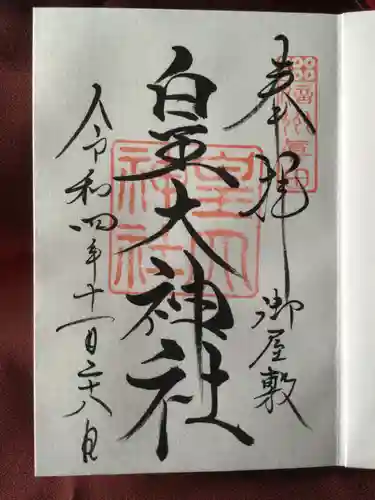 奉拝
御屋敷
皇大神社
令和四年十一月二十八日
皇大
神社